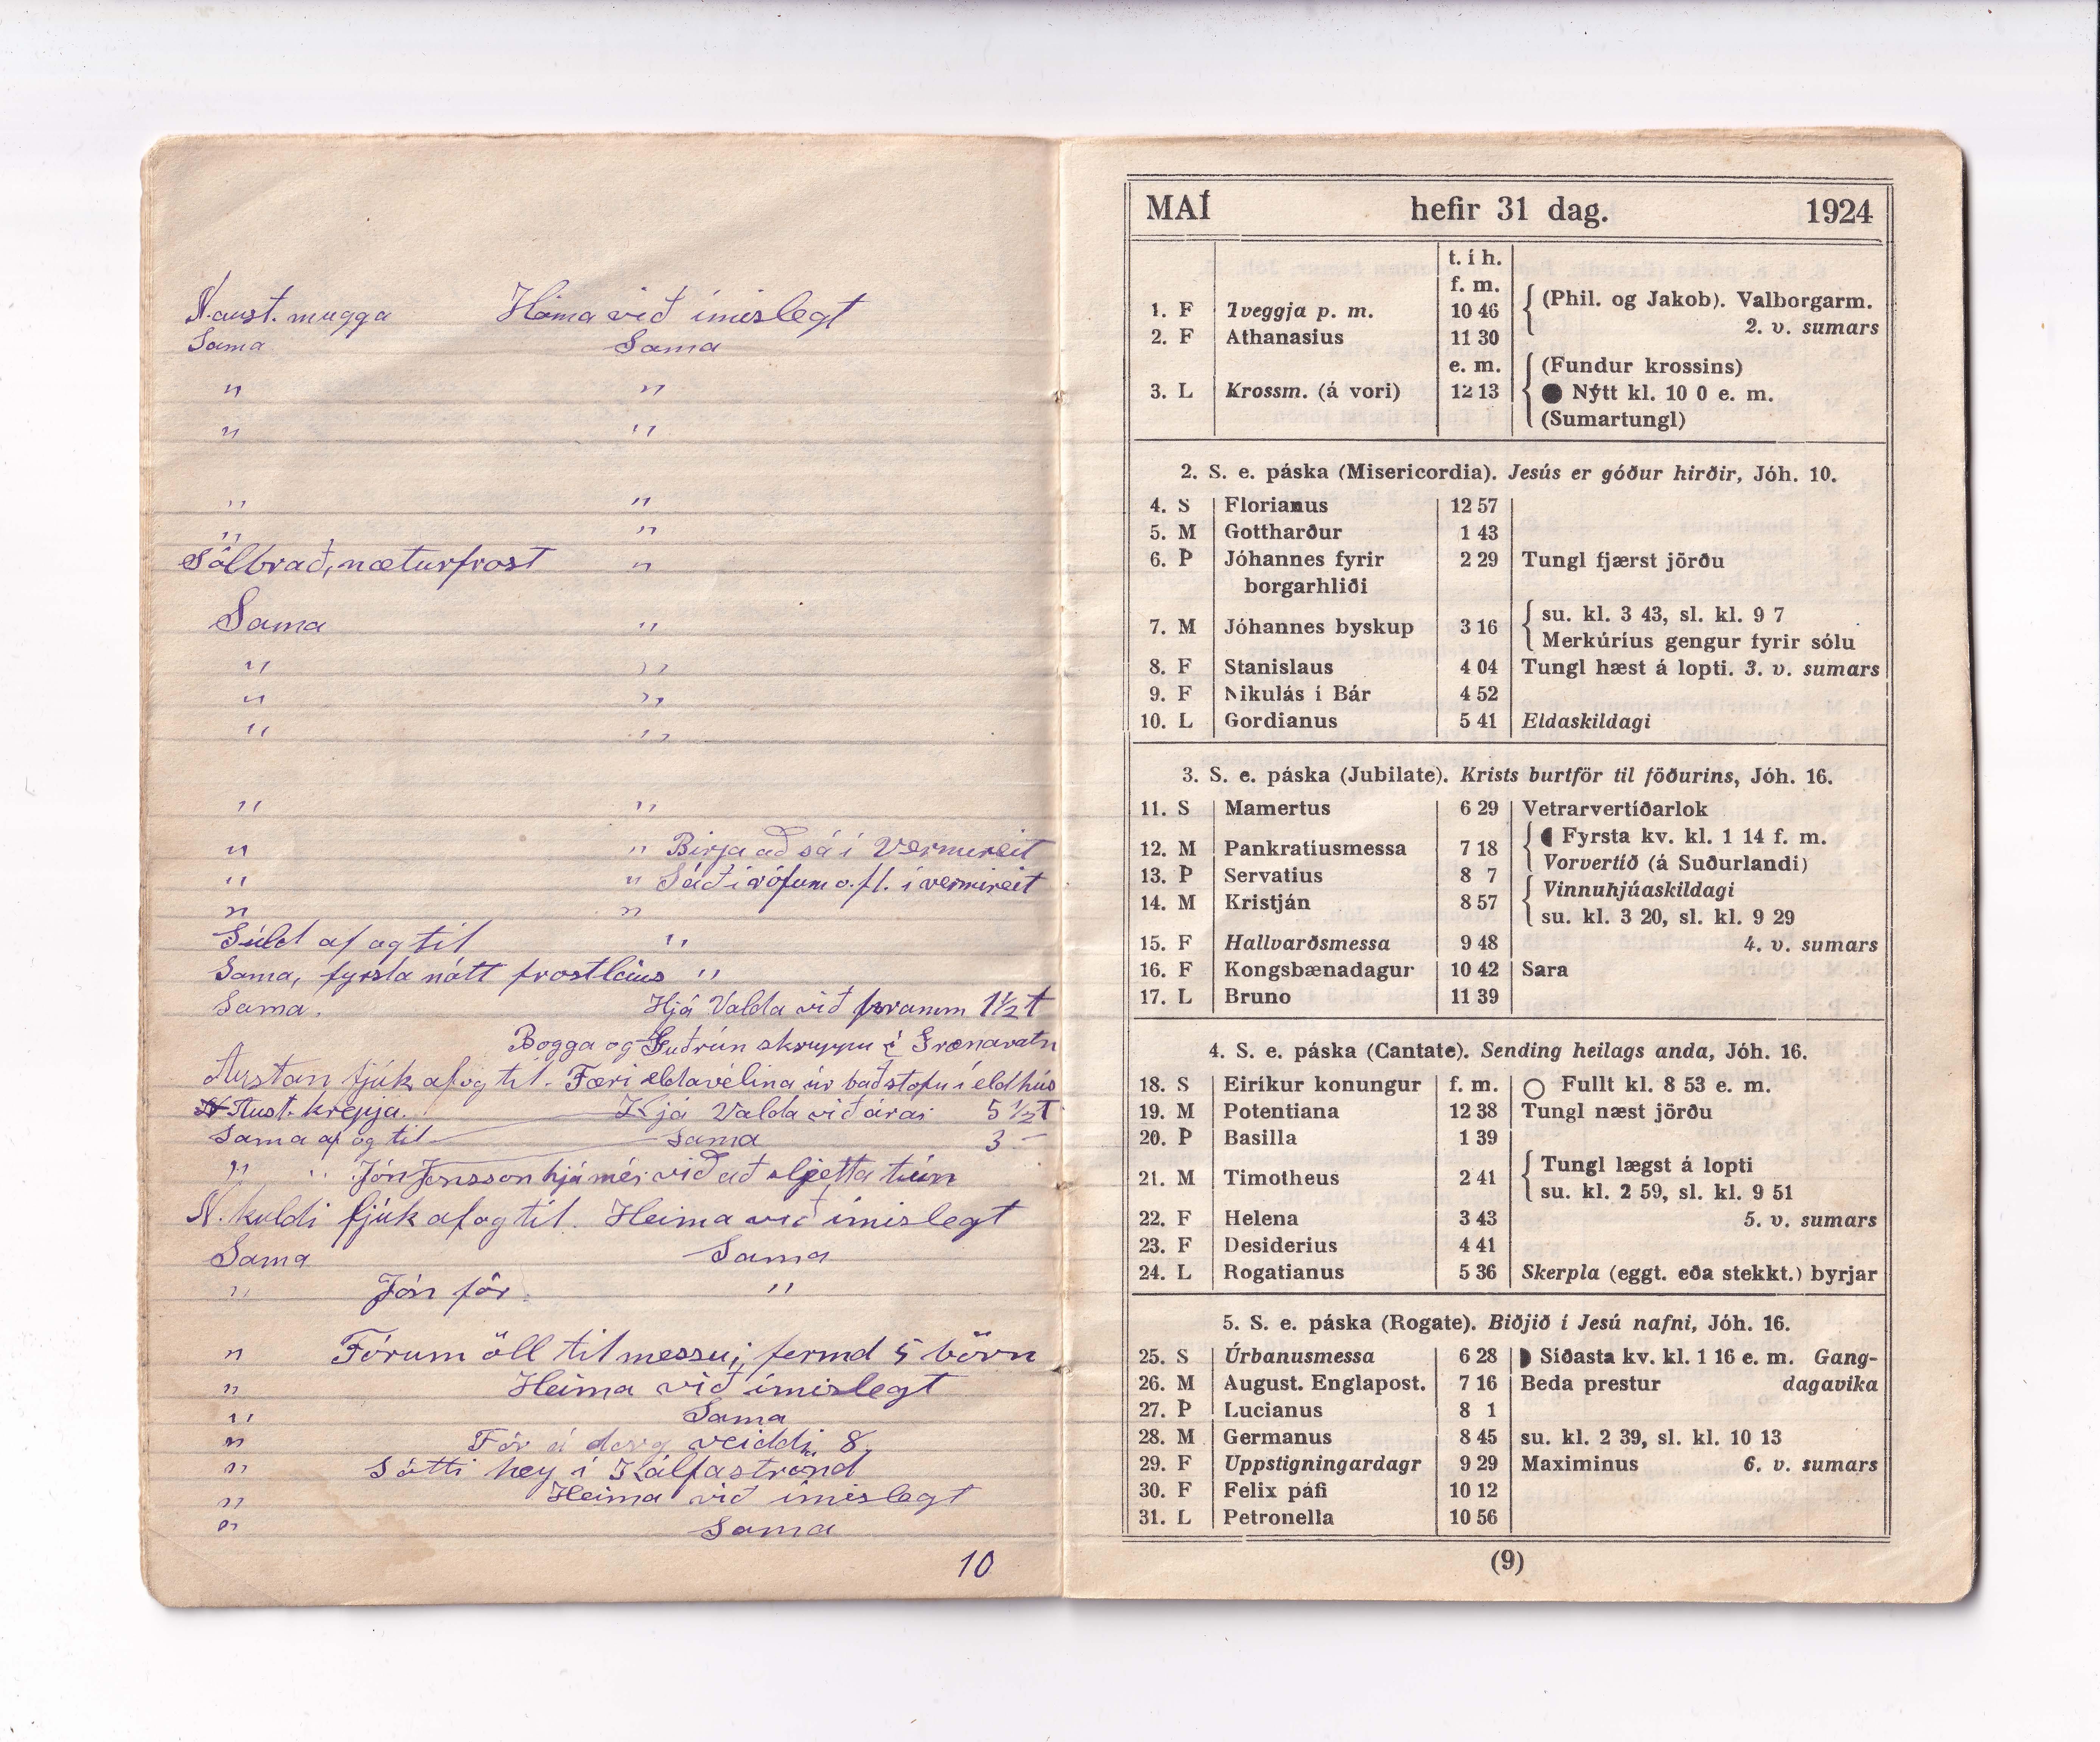 N.aust. mugga Heima við ímislegt
Sama Sama
" "
" "
" "
" "
Sólbrað, næturfrost "
Sama "
" "
" "
" "
" "
" " Birja að sá í Vermireit
" " Sáði rófum o.fl. í vermireit
" "
Súld af og til "
Sama, fyrsta nátt frostlaus "
Sama. Hjá Valda við 1½ t
Bogga og Guðrún skruppu í Grænavatn
Austan fjúk af og til. Færi eldavélina úr baðstofu í eldhús
N Aust. krepja. Hjá Valda við 5 ½ T
Sama af og til Sama 3 –
" " Jón Jónsson hjá mér við að sljetta tún
N. kuldi fjúk af og til. Heima við ímislegt
Sama Sama
" Jón fór. "
" Fórum öll til messu; fermd 5 börn
" Heima við ímislegt
" Sama
" Fór á dorg veiddi 8.
" Sótti hey í Kálfaströnd
" Heima við ímislegt
" Sama
10
MAÍ hefir 31 dag. 1924
t. í h.
f. m.
1. F Tveggja p. m. 10 46 (Phil. og Jakob). Valborgarm.
2. v. sumars
2. F Athanasius 11 30
e. m. (Fundur krossins)
3. L Krossm. (á vori) 12 13 ● Nýtt kl. 10 0 e. m.
(Sumartungl)
2. S. e. páska (Misericordia). Jesús er góður hirðir, Jóh. 10.
4. S Florianus 12 57
5. M Gottharður 1 43
6. Þ Jóhannes fyrir 2 29 Tungl fjærst jörðu
borgarhliði
su. kl. 3 43, sl. kl. 9 7
7. M Jóhannes byskup 3 16
Merkúríus gengur fyrir sólu
8. F Stanislaus 4 04 Tungl hæst á lopti. 3. v. sumars
9. F Nikulás í Bár 4 52
10. L Gordianus 5 41 Eldaskildagi
3. S. e. páska (Jubilate). Krists burtför til föðurins, Jóh. 16.
11. S Mamertus 6 29 Vetrarvertíðarlok
Fyrsta kv. kl. 1 14 f. m.
12. M Pankratiusmessa 7 18
Vorvertíð (á Suðurlandi)
13. Þ Servatius 8 7
Vinnuhjúaskildagi
14. M Kristján 8 57
su. kl. 3 20, sl. kl. 9 29
15. F Hallvarðsmessa 9 48 4. v. sumars
16. F Kongsbænadagur 10 42 Sara
17. L Bruno 11 39
4. S. e. páska (Cantate). Sending heilags anda, Jóh. 16.
18. S Eiríkur konungur f. m. ○ Fullt kl. 8 53 e. m.
19. M Potentiana 12 38 Tungl næst jörðu
20. Þ Basilla 1 39
Tungl lægst á lopti
21. M Timotheus 2 41
su. kl. 2 59, sl. kl. 9 51
22. F Helena 3 43 5. v. sumars
23. F Desiderius 4 41
24. L Rogatianus 5 36 Skerpla (eggt. eða stekkt.) byrjar
5. S. e. páska (Rogate). Biðjið í Jesú nafni, Jóh. 16.
25. S Úrbanusmessa 6 28 Síðasta kv. kl. 1 16 e. m. Gang-
26. M August. Englapost. 7 16 Beda prestur dagavika
27. Þ Lucianus 8 1
28. M Germanus 8 45 su. kl. 2 39, sl. kl. 10 13
29. F Uppstigningardagr 9 29 Maximinus 6. v. sumars
30. F Felix páfi 10 12
31. L Petronella 10 56
(9)